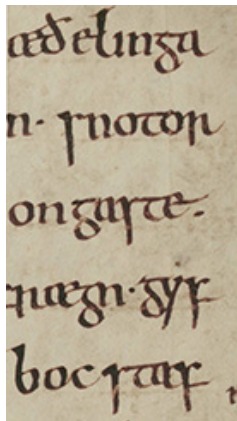 æðelinga
n· snotor
on gaste.
frægn· gyf
boc staf